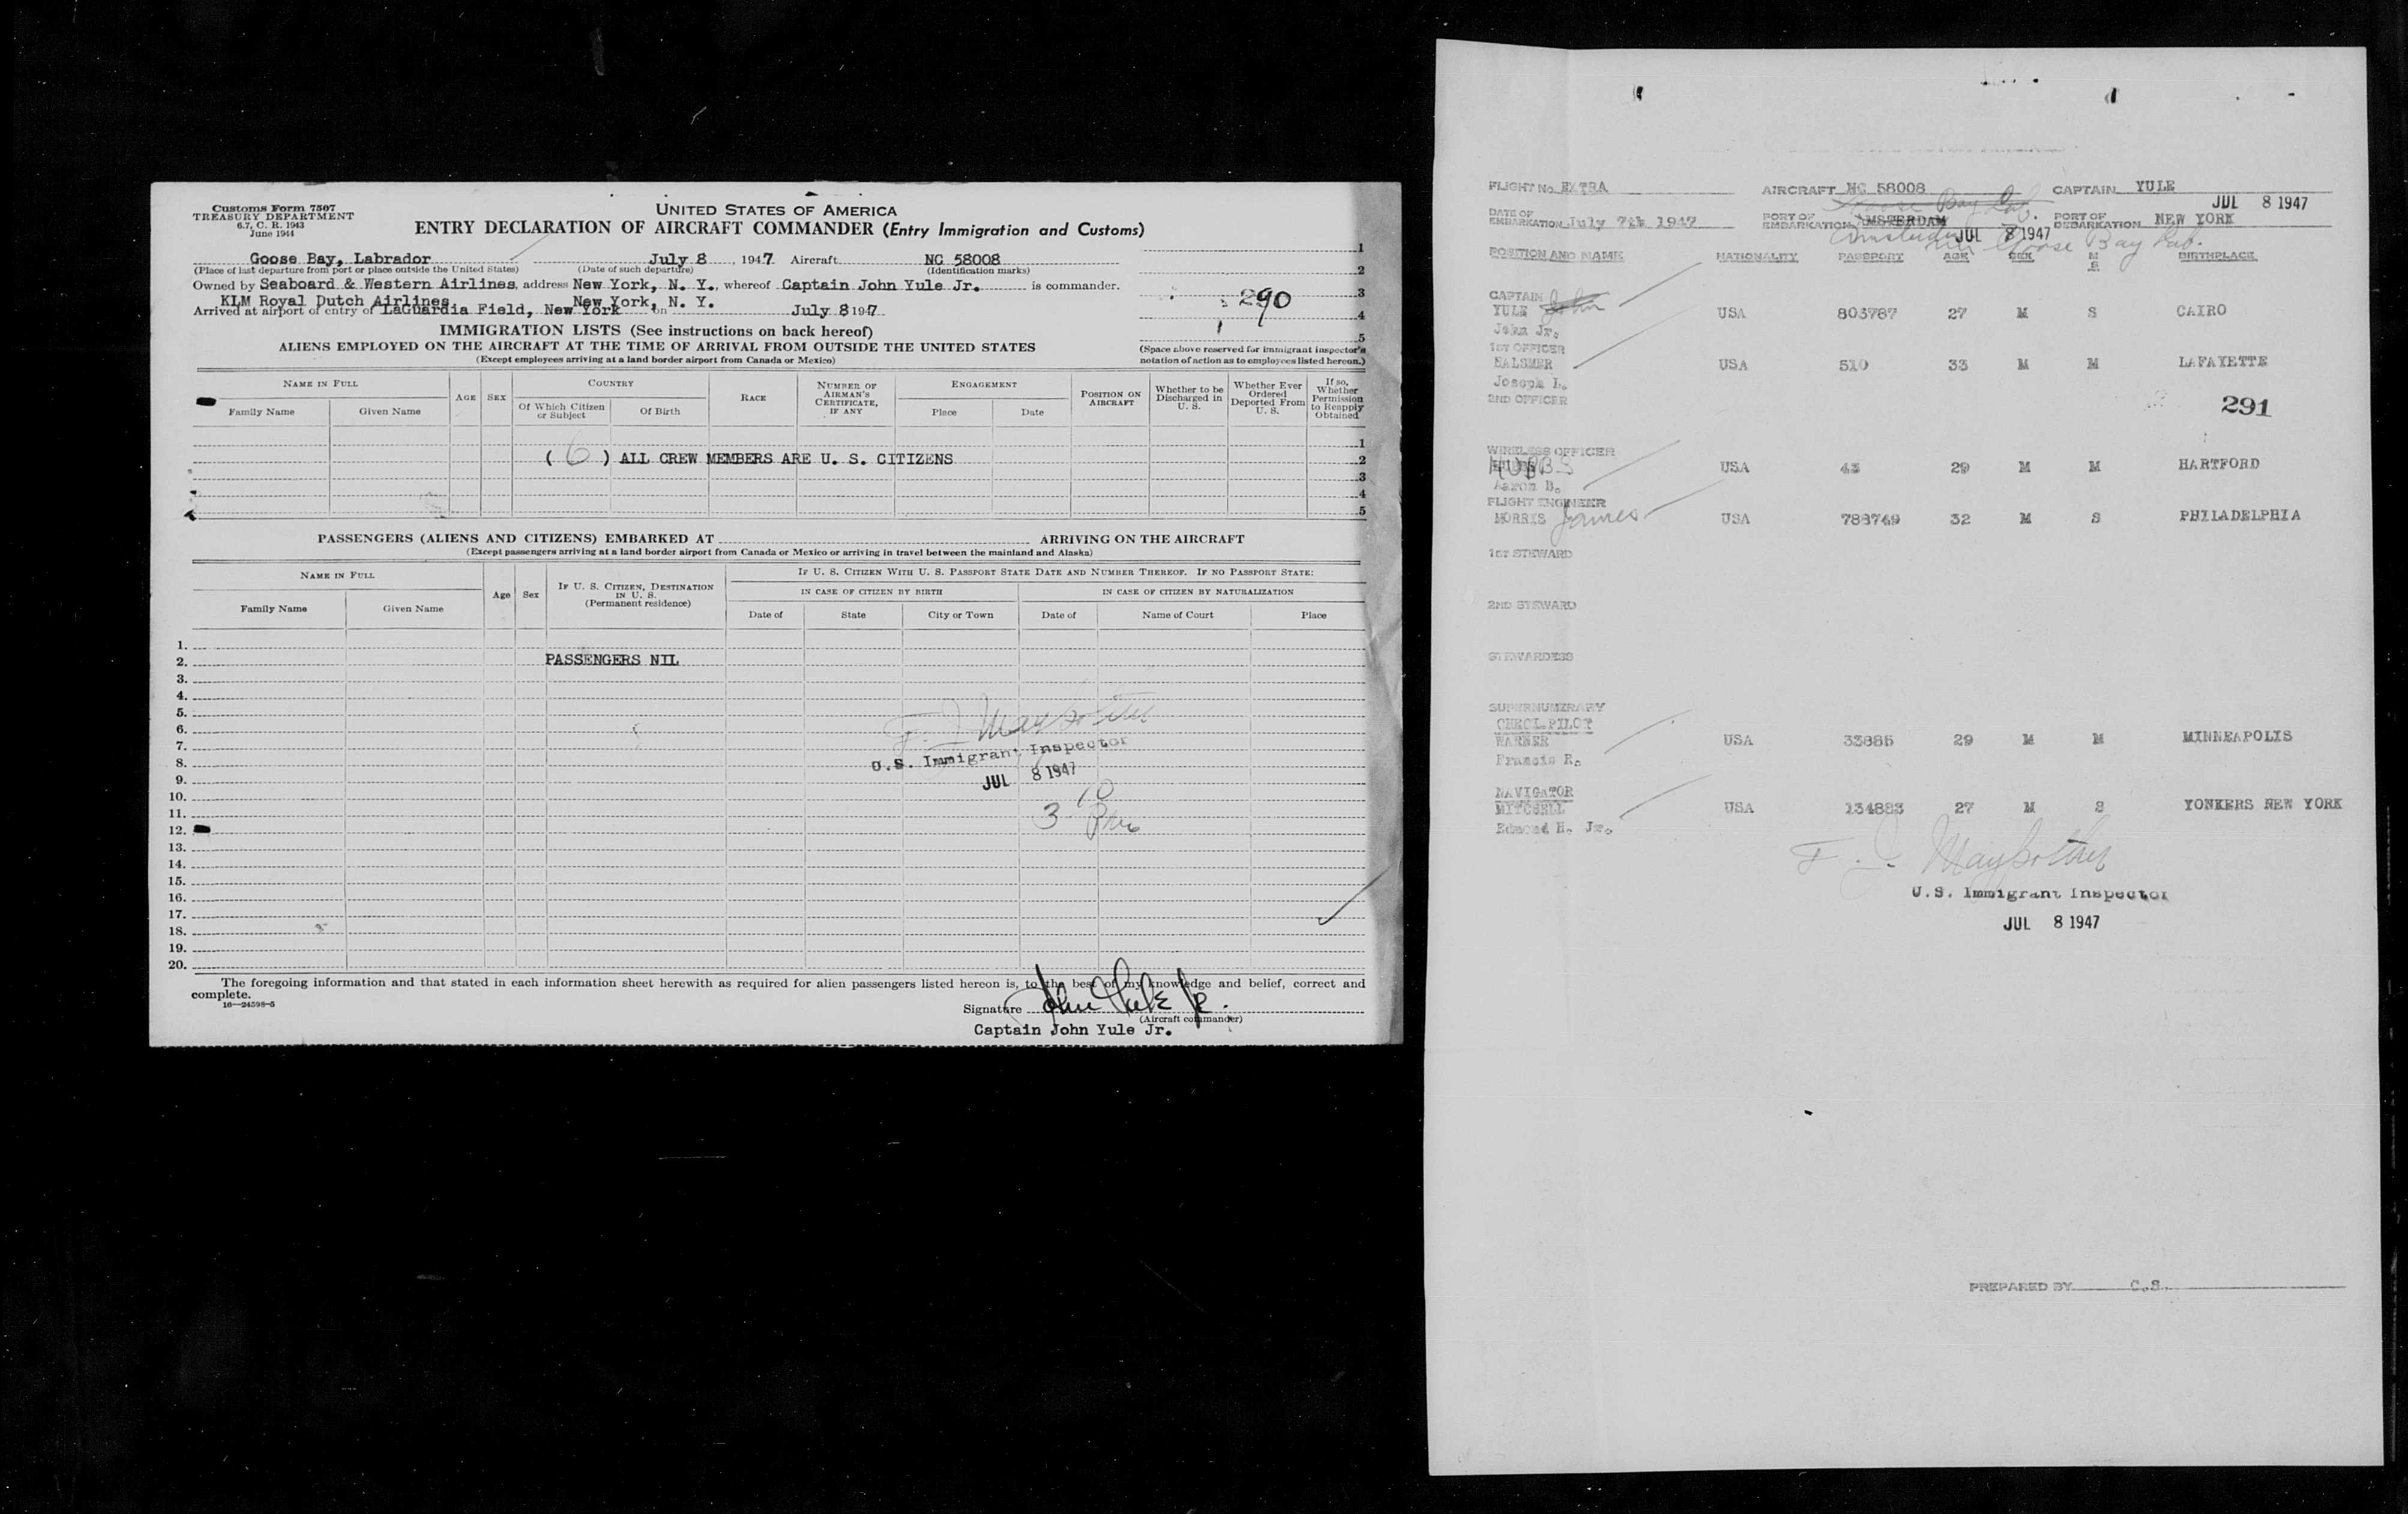 Customs Form 7507
TREASURY DEPARTMENT
6.7, C. R. 1943
June 1944
UNITED STATES OF AMERICA
ENTRY DECLARATION OF AIRCRAFT COMMANDER (Entry Immigration and Customs)
Goose Bay, Labrador July 8, 1947 Aircraft NC 58008
(Place of last departure from port or place outside the United States) (Date of such departure) (Identification marks)
Owned by Seaboard & Western Airlines, address New York, N. Y., whereof Captain John Yule Jr. is commander.
KLM Royal Dutch Airlines New York, N. Y.
Arrived at airport of entry of LaGuardia Field, New York on July 8 1947
1
2
3
4
5
290
IMMIGRATION LISTS (See instructions on back hereof)
ALIENS EMPLOYED ON THE AIRCRAFT AT THE TIME OF ARRIVAL FROM OUTSIDE THE UNITED STATES
(Except employees arriving at a land border airport from Canada or Mexico)
(Space above reserved for immigrant inspector's
notation of action as to employees listed hereon.)
NAME IN FULL
Family Name Given Name
AGE SEX
COUNTRY
Of Which Citizen or Subject Of Birth
RACE
NUMBER OF AIRMAN'S CERTIFICATE, IF ANY
ENGAGEMENT
Place Date
POSITION ON AIRCRAFT
Whether to be Discharged in U. S.
Whether Ever Ordered Deported From U. S.
If so, Whether Permission to Reapply Obtained
1
( 6 ) ALL CREW MEMBERS ARE U. S. CITIZENS 2
3
4
5
PASSENGERS (ALIENS AND CITIZENS) EMBARKED AT ARRIVING ON THE AIRCRAFT
(Except passengers arriving at a land border airport from Canada or Mexico or arriving in travel between the mainland and Alaska)
NAME IN FULL
Family Name Given Name
Age Sex
IF U. S. CITIZEN, DESTINATION IN U. S. (Permanent residence)
IF U. S. CITIZEN WITH U. S. PASSPORT STATE DATE AND NUMBER THEREOF. IF NO PASSPORT STATE:
IN CASE OF CITIZEN BY BIRTH IN CASE OF CITIZEN BY NATURALIZATION
Date of State City or Town Date of Name of Court Place
1.
2. PASSENGERS NIL
3.
4.
5.
6.
7.
8.
9.
10.
11.
12.
13.
14.
15.
16.
17.
18.
19.
20.
F. J. Maybother
U.S. Immigrant Inspector
JUL 8 1947
3 10
The foregoing information and that stated in each information sheet herewith as required for alien passengers listed hereon is, to the best of my knowledge and belief, correct and
complete.
16—24598-5
Signature John Yule Jr.
(Aircraft commander)
Captain John Yule Jr.
FLIGHT No. EXTRA AIRCRAFT NC 58008 CAPTAIN YULE
Goose Bay Lab. JUL 8 1947
DATE OF EMBARKATION July 7th 1947 PORT OF EMBARKATION AMSTERDAM PORT OF DEBARKATION NEW YORK
Amsterdam JUL 8 1947 Goose Bay Lab.
POSITION AND NAME NATIONALITY PASSPORT AGE SEX M S BIRTHPLACE
CAPTAIN
YULE John USA 803787 27 M S CAIRO
John Jr.
1ST OFFICER
BALSMER USA 510 33 M M LAFAYETTE
Joseph L.
2ND OFFICER
291
WIRELESS OFFICER
HUBBS USA 43 29 M M HARTFORD
Aaron B.
FLIGHT ENGINEER
MORRIS James USA 788749 32 M S PHILADELPHIA
1ST STEWARD
2ND STEWARD
STEWARDESS
SUPERNUMERARY
CHECK PILOT
WARNER USA 33885 29 M M MINNEAPOLIS
Francis R.
NAVIGATOR
MITCHELL USA 134883 27 M S YONKERS NEW YORK
Edmond H. Jr.
F. J. Maybother
U.S. Immigrant Inspector
JUL 8 1947
PREPARED BY C.S.